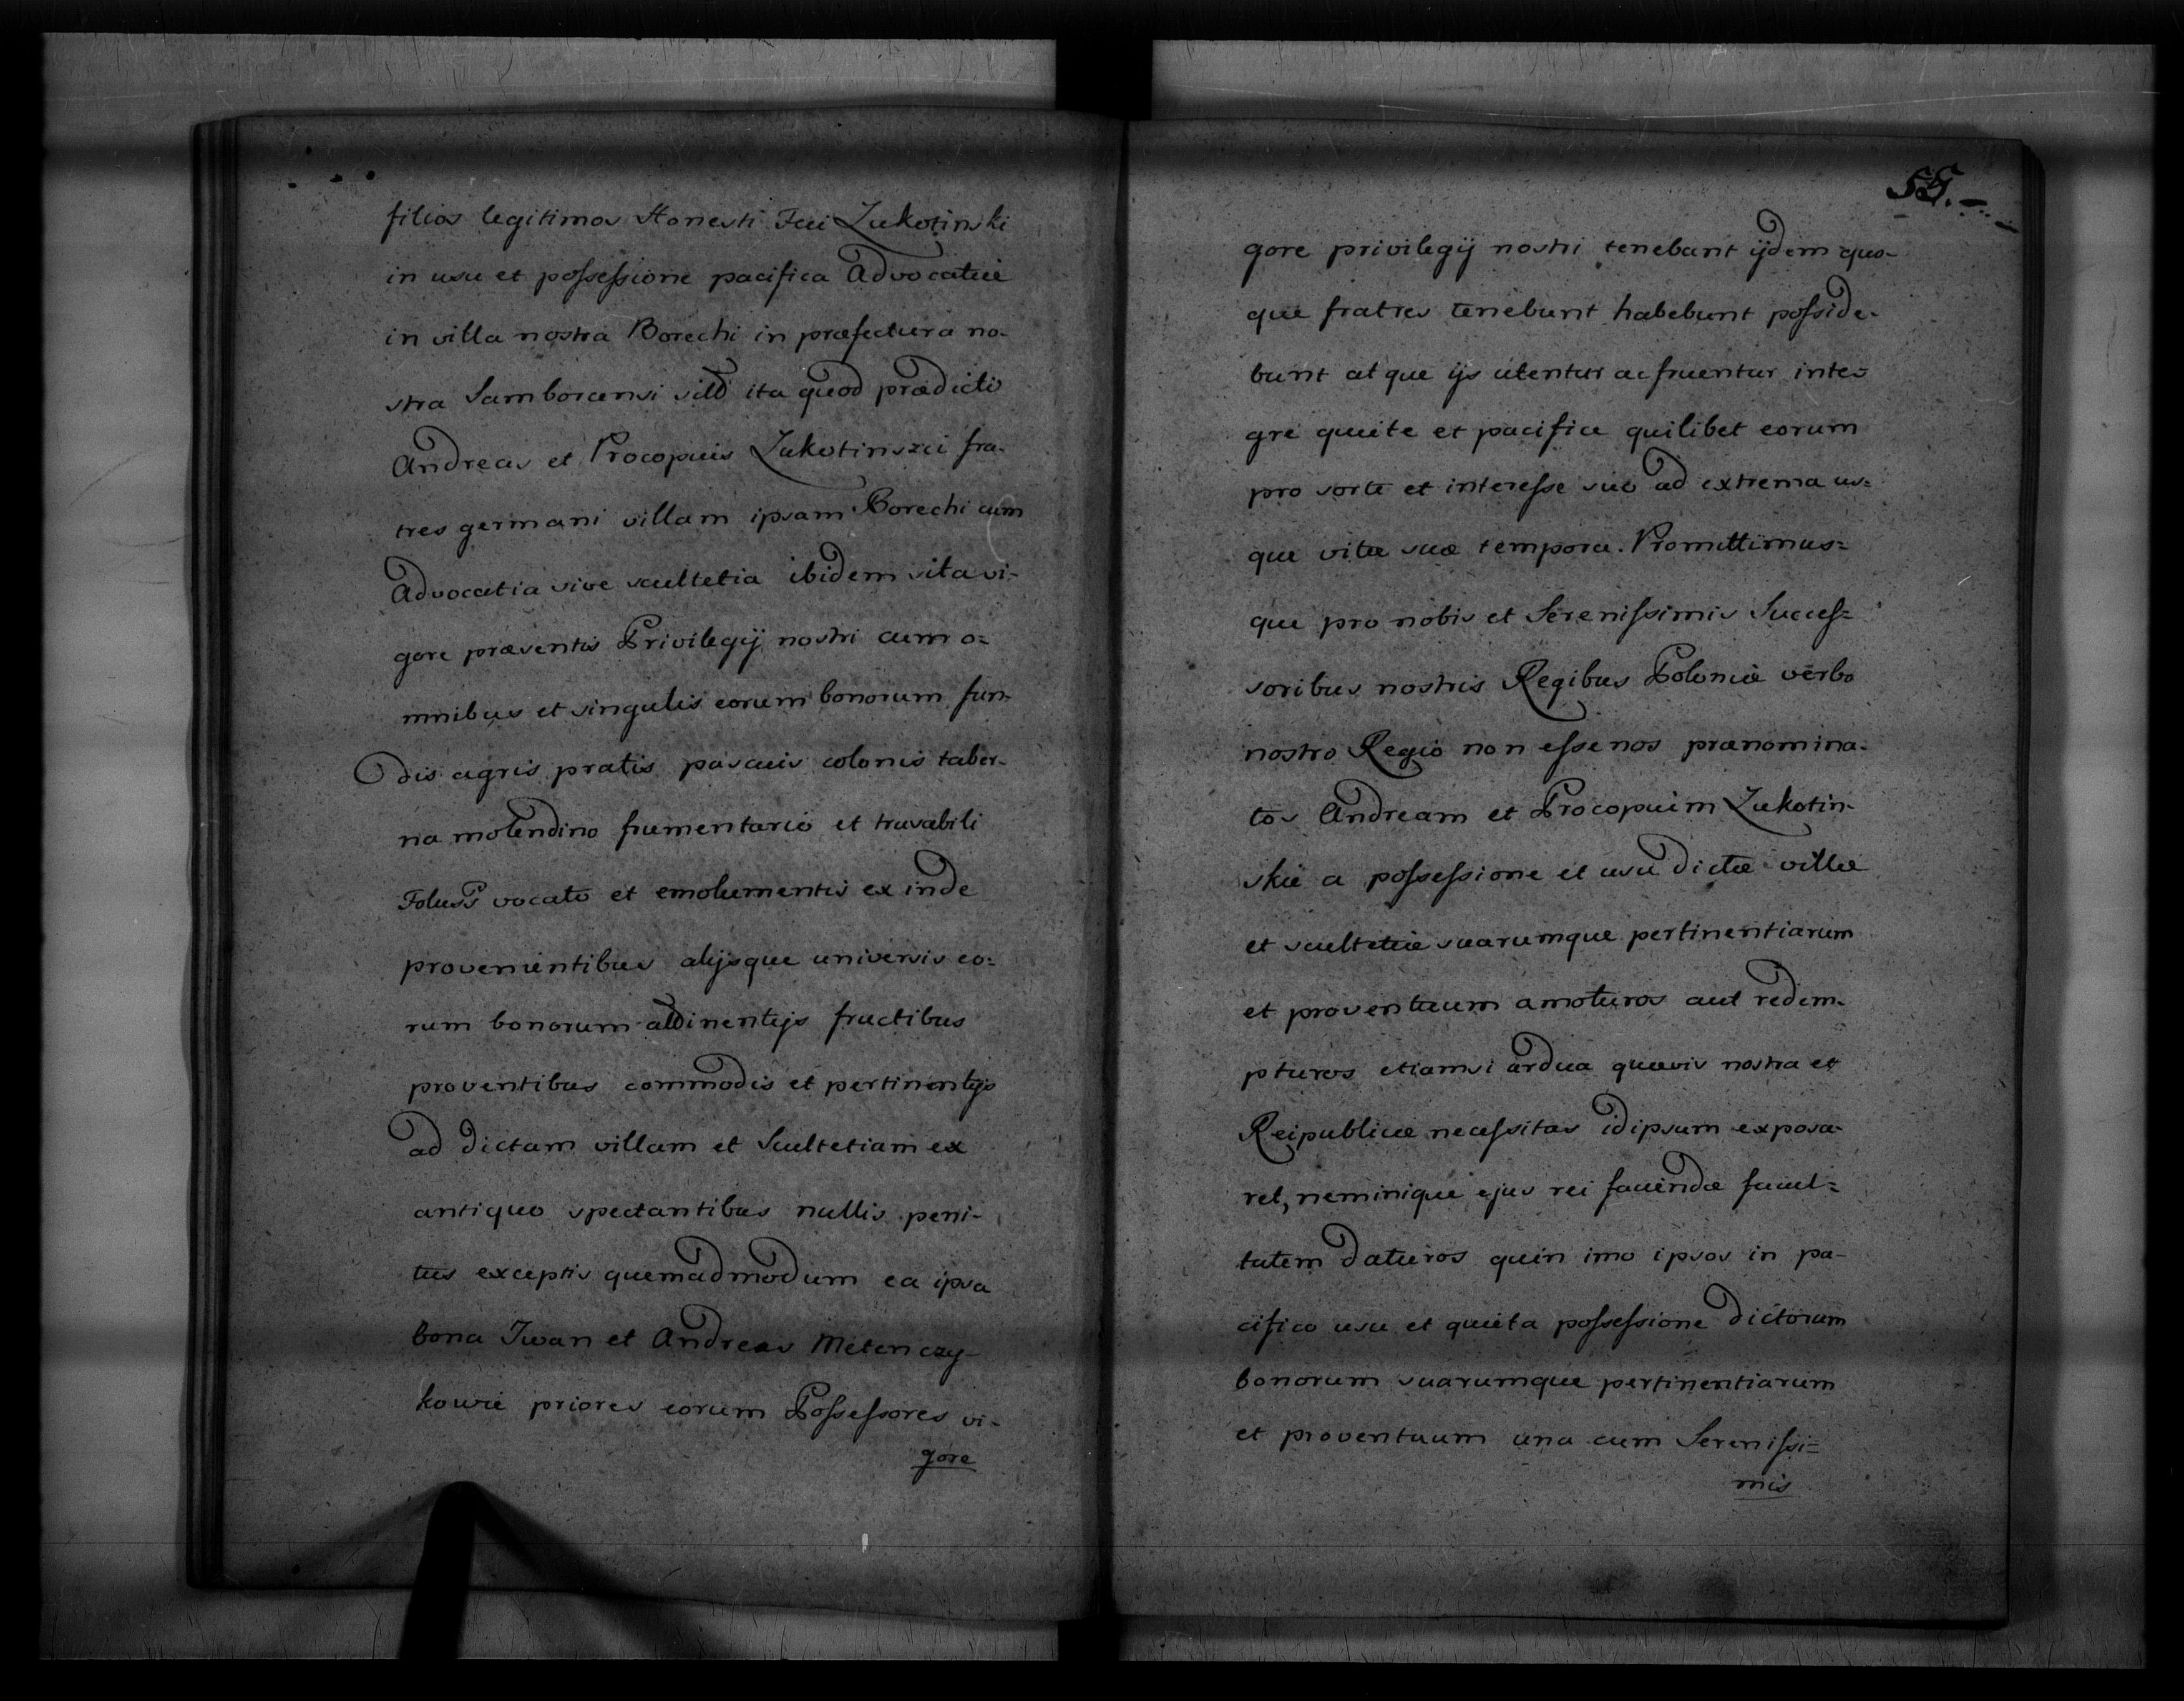 filios legitimos Honesti Fui Zukotinski
in usu et possessione pacifica Advocatiæ
in villa nostra Borechi in præfectura no-
stra Samboriensi ita quod prædicti
Andreas et Procopius Zukotinscii fra-
tres germani villam ipsam Borechi cum
Advocatia sive scultetia ibidem sita vi-
gore præsentis Privilegij nostri cum o=
mnibus et singulis eorum bonorum fun-
dis agris pratis pascuis colonis taber-
na molendino frumentario et trusabili
Foluss vocato et emolumentis ex inde
provenientibus alijsque universis eo=
rum bonorum attinentijs fructibus
proventibus commodis et pertinentijs
ad dictam villam et Scultetiam ex
antiquo spectantibus nullis peni-
tus exceptis quemadmodum ea ipsa
bona Iwan et Andreas Metenczy-
kowie priores eorum Possessores vi-
gore
55.-
gore privilegij nostri tenebant ijdem quo-
que fratres tenebunt habebunt posside-
bunt atque ijs utentur ac fruentur inte=
gre quiete et pacifice quilibet eorum
pro sorte et interesse suo ad extrema us=
que vitæ suæ tempora. Promittimus=
que pro nobis et Serenissimis Succes=
soribus nostris Regibus Poloniæ verbo
nostro Regio non esse nos prænomina-
tos Andream et Procopium Zukotin-
skie a possessione et usu dictæ villæ
et scultetiæ suarumque pertinentiarum
et proventuum amoturos aut redem-
pturos etiamsi ardua quævis nostra et
Reipublicæ necessitas idipsum exposce-
ret, neminique ejus rei faciendæ facul=
tatem daturos quin imo ipsos in pa-
cifico usu et quieta possessione dictorum
bonorum suarumque pertinentiarum
et proventuum una cum Serenissi=
mis